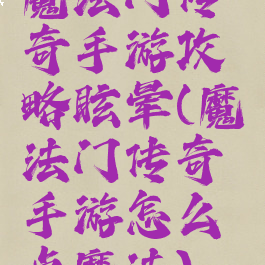 魔法门传
奇手游攻
略眩晕(魔
法门传奇
手游怎么
点魔法)